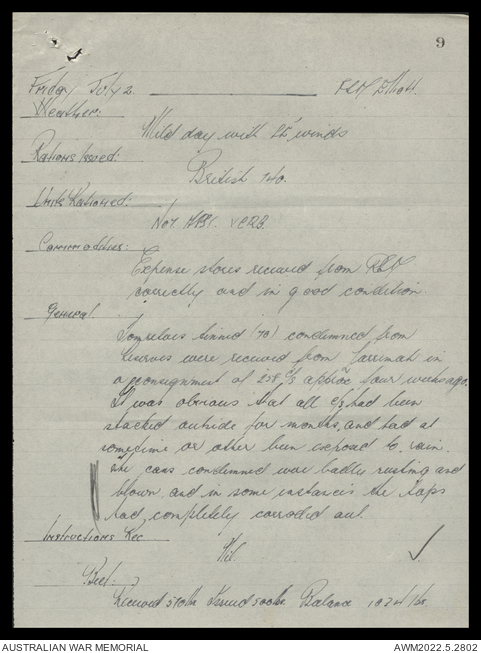 9
Friday July 2.
Weather:
Mild day with SE winds
Rations Issued:
British 740.
Units Rationed:
No 1
Commodities:
Expense stores received from
correctly and in good condition
General
tinned (70) condemned from
Reserves were received from Larrimah in
a consignment of 258 c/s approx four weeks ago.
It was obvious that all c/s had been
stacked outside for months, and had at
sometime or other been exposed to rain.
The cans condemned were badly rusting and
blown, and in some instances the
had, completely corroded out.
Instructions Rec
Nil.
Beef:
Received Issued Balance
AUSTRALIAN WAR MEMORIAL
AWM2022.5.2802